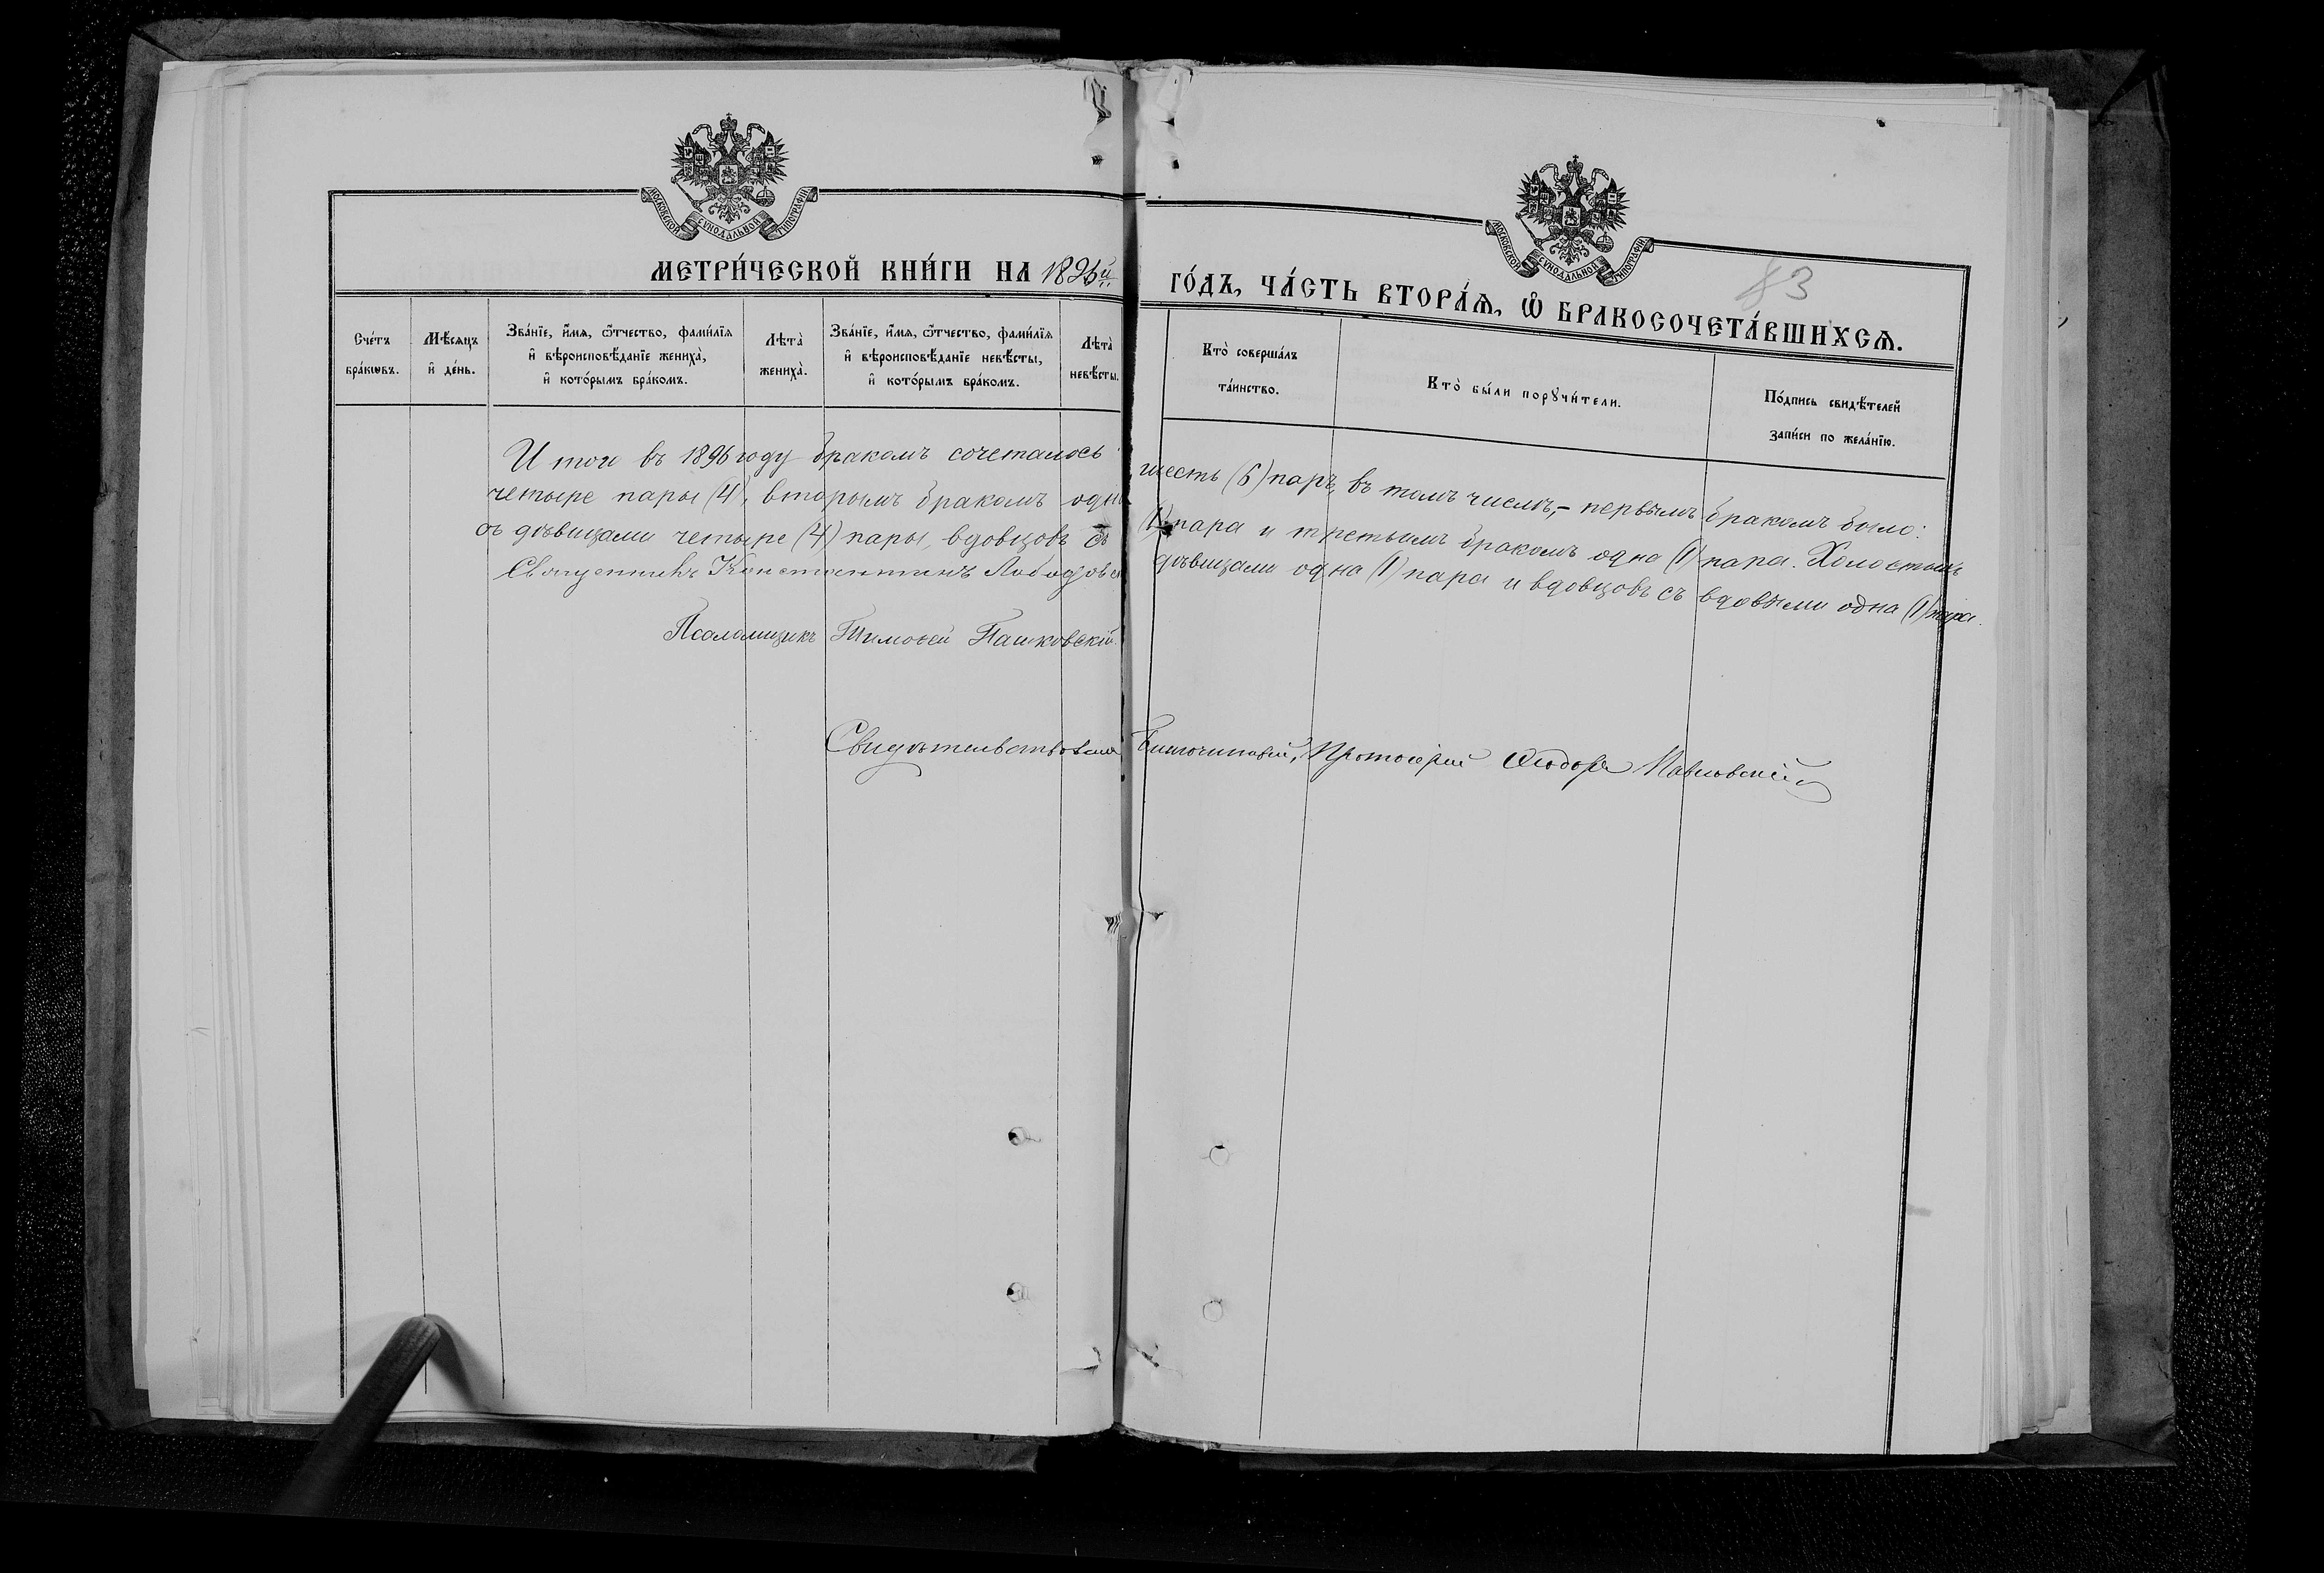 МОСКОВСКОЙ СУНОДАЛЬНОЙ ТИПОГРАФІИ
МОСКОВСКОЙ СУНОДАЛЬНОЙ ТИПОГРАФІИ
83
МЕТРИ́ЧЕСКОЙ КНИ́ГИ НА 1896й ГО́ДЪ, ЧА́СТЬ ВТОРА́Ѧ, Ѽ БРАКОСОЧЕТА́ВШИХСѦ.
Сче́тъ бра́кѡвъ.
Мѣ́сяцъ и҆ де́нь.
Зва́нїе, и҆́мя, ѻ҆́тчество, фами́лїя и҆ вѣроисповѣ́данїе жениха̀, и҆ кото́рымъ бра́комъ.
Лѣта̀ жениха̀.
Зва́нїе, и҆́мя, ѻ҆́тчество, фами́лїя и҆ вѣроисповѣ́данїе невѣ́сты, и҆ кото́рымъ бра́комъ.
Лѣта̀ невѣ́сты.
Кто̀ соверша́лъ та́инство.
Кто̀ бы́ли порꙋчи́тели.
По́дпись свидѣ́телей за́писи по жела́нїю.
Итого въ 1896 году бракомъ сочеталось шесть (6) паръ, въ томъ числѣ,- первымъ бракомъ было:
четыре пары (4), вторымъ бракомъ одна (1) пара и третьимъ бракомъ одна (1) пара. Холостыхъ
съ дѣвицами четыре (4) пары, вдовцовъ съ дѣвицами одна (1) пара и вдовцовъ съ вдовами одна (1) пара.
Священникъ Константинъ
Псаломщикъ Тимоѳей Пашковскій.
Свидѣтельствовалъ Благочинный, Протоіерей Ѳеодоръ Павловскій